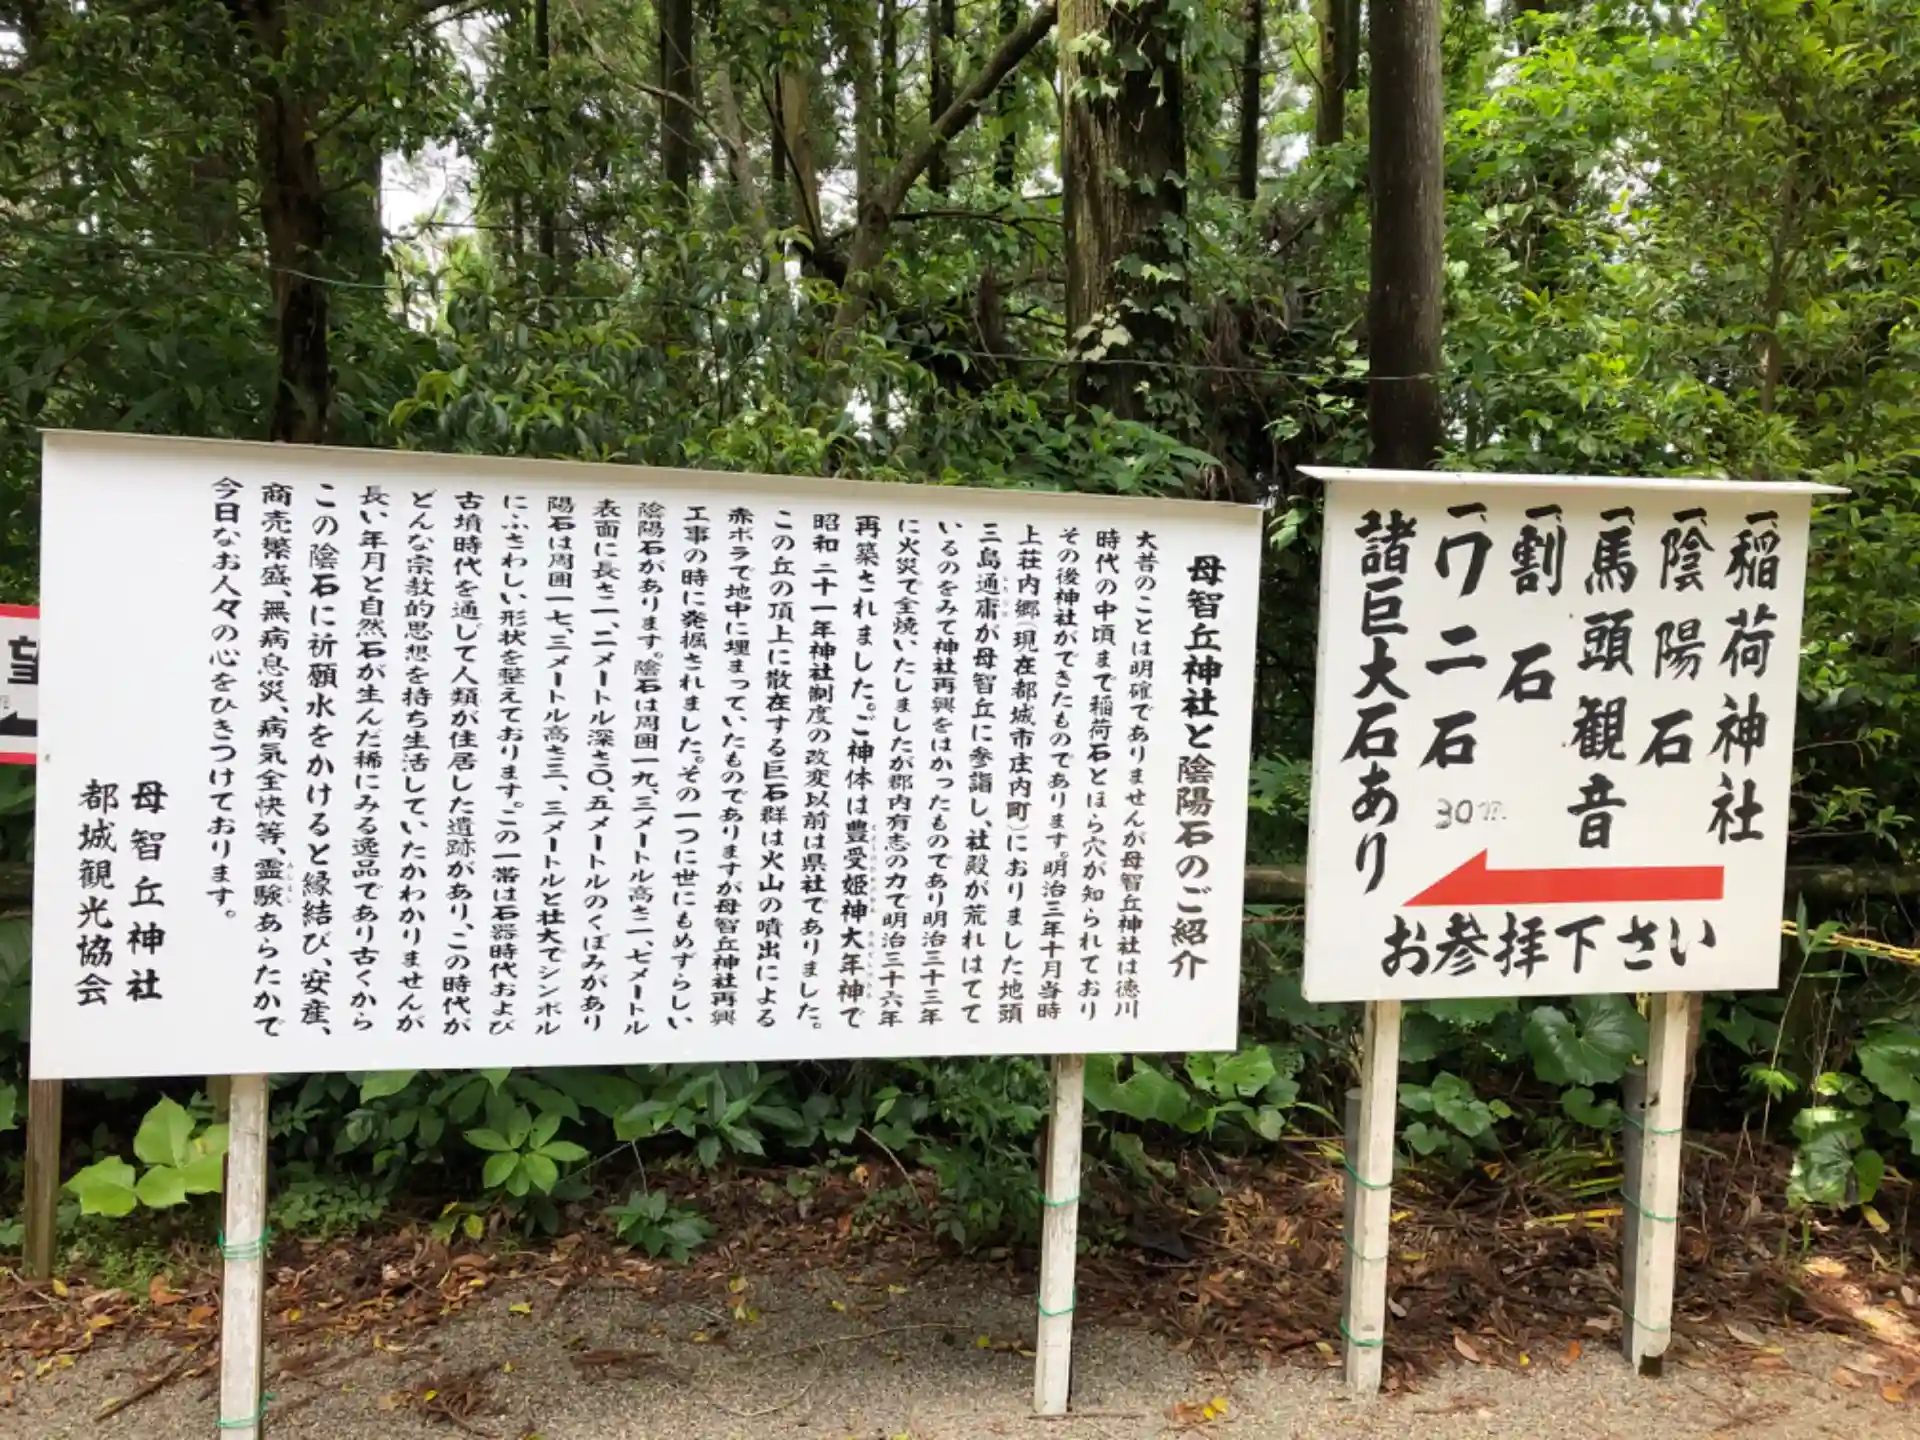 母智丘神社と陰陽石のご紹介
大昔のことは明確でありませんが母智丘神社は徳川
時代の中頃まで稲荷石とほら穴が知られており
その後神社ができたものであります。明治三年十月当時
上荘内郷(現在都城市庄内町)におりました地頭
三島通庸が母智丘に参詣し、社殿が荒れはてて
いるのをみて神社再興をはかったものであり明治三十三年
に火災で全焼いたしましたが郡内有志の力で明治三十六年
再築されました。ご神体は豊受姫神大年神で
昭和二十一年神社制度の改変以前は県社でありました。
この丘の頂上に散在する巨石群は火山の噴出による
赤ボラで地中に埋まっていたものでありますが母智丘神社再興
工事の時に発掘されました。その一つに世にもめずらしい
陰陽石があります。陰石は周囲一九、三メートル高さ二、七メートル
表面に長さ二、二メートル深さ〇、五メートルのくぼみがあり
陽石は周囲一七、三メートル高さ三、三メートルと壮大でシンボル
にふさわしい形状を整えております。この一帯は石器時代および
古墳時代を通して人類が住居した遺跡があり、この時代が
どんな宗教的思想を持ち生活していたかわかりませんが
長い年月と自然石が生んだ稀にみる逸品であり古くから
この陰石に祈願水をかけると縁結び、安産、
商売繁盛、無病息災、病気全快等、霊験あらたかで
今日なお人々の心をひきつけております。
母智丘神社
都城観光協会
一稲荷神社
一陰陽石
一馬頭観音
一割石
一ワニ石
30m
諸巨大石あり
お参拝下さい
望